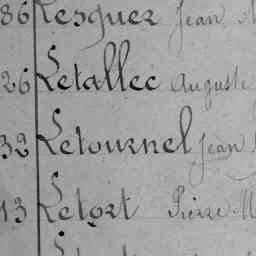 86 Lesquer Jean
26 Letallec Auguste
32 Letournel Jean
13 Letort Pierre M